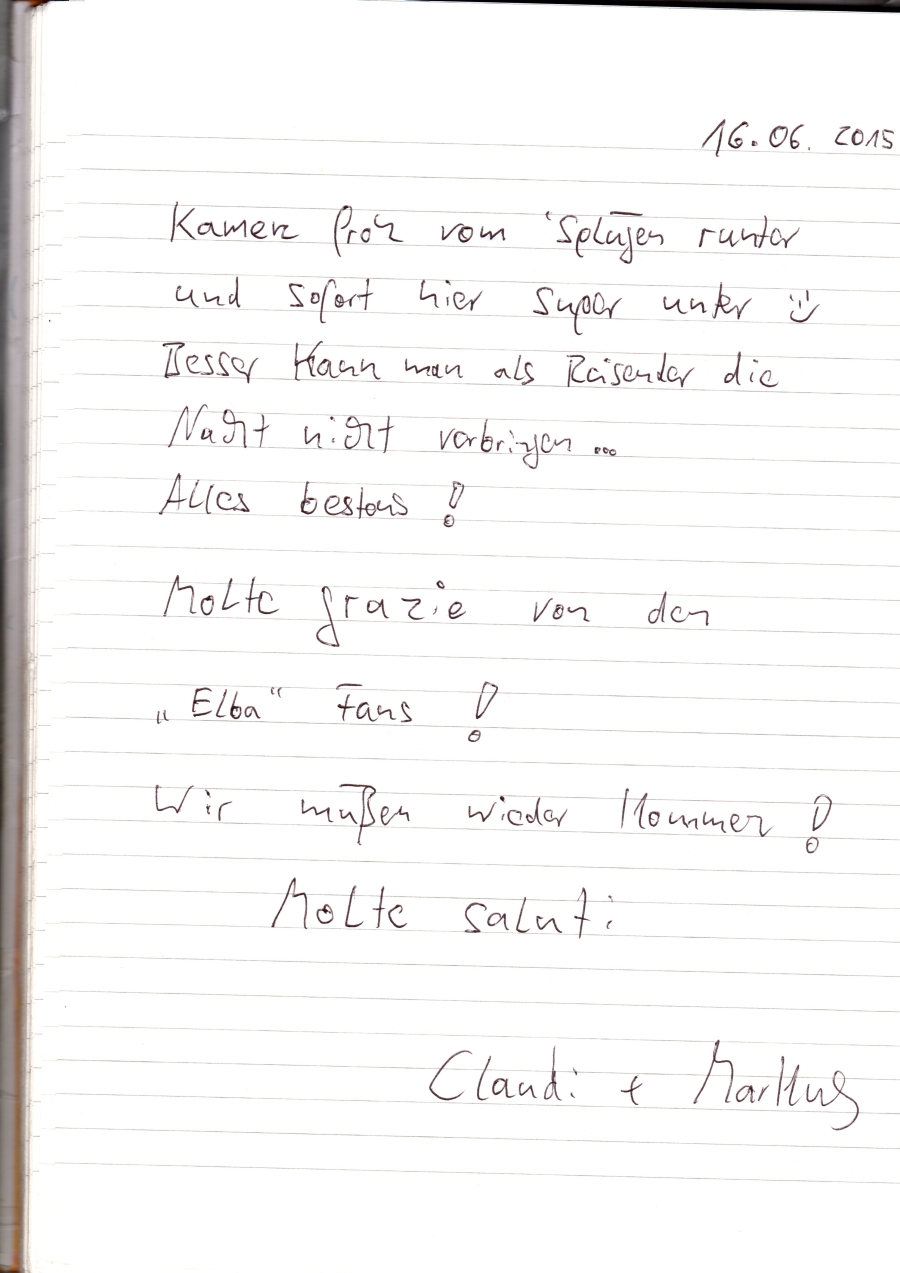 16.06. 2015
Kamen früh vom Splügen runter
und sofort hier super unter
Besser kann man als Reisender die
Nacht nicht verbringen ...
Alles bestens !
Molte grazie von den
„Elba“ Fans !
Wir mußen wieder kommen !
Molte saluti
Claudi + Markus